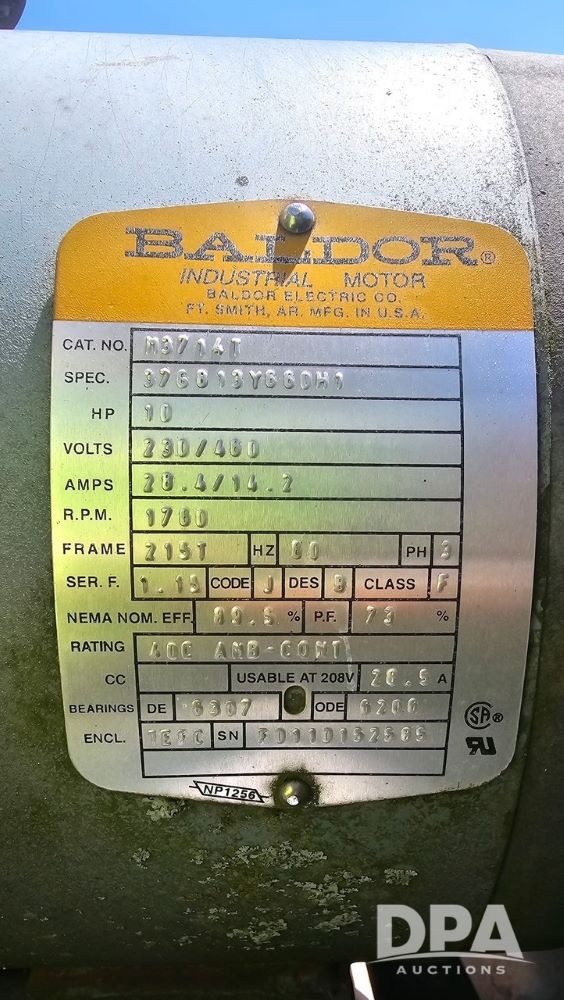 BALDOR®
INDUSTRIAL MOTOR
BALDOR ELECTRIC CO.
FT. SMITH, AR. MFG. IN U.S.A.
CAT. NO. M3714T
SPEC.
HP 10
VOLTS 230/460
AMPS 28.4/14.2
R.P.M. 1760
FRAME 215T HZ 60 PH 3
SER. F. 1.15 CODE J DES B CLASS F
NEMA NOM. EFF. 89.5 % P.F. 73 %
RATING 40C AMB-CONT
CC USABLE AT 208V A
BEARINGS DE 6307 ODE 6206
ENCL. TEFC SN
NP1256
SA®
DPA
AUCTIONS